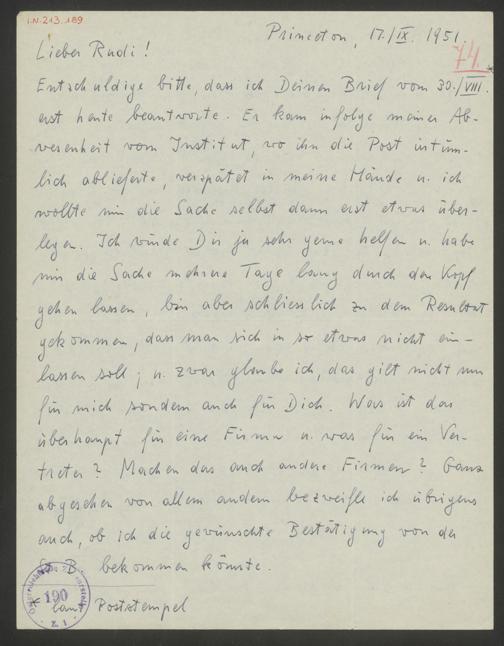 I.N. 213.189
Princeton, 17./IX. 1951.
74.
Lieber Rudi!
Entschuldige bitte, dass ich Deinen Brief vom 30./VIII.*
erst heute beantworte. Er kam infolge meiner Ab-
wesenheit vom Institut, wo ihn die Post irrtüm-
lich ablieferte, verspätet in meine Hände u. ich
wollte mir die Sache selbst dann erst etwas über-
legen. Ich würde Dir ja sehr gerne helfen u. habe
mir die Sache mehrere Tage lang durch den Kopf
gehen lassen, bin aber schliesslich zu dem Resultat
gekommen, dass man sich in so etwas nicht ein-
lassen soll; u. zwar glaube ich, das gilt nicht nur
für mich sondern auch für Dich. Was ist das
überhaupt für eine Firma u. was für ein Ver-
treter? Machen das auch andere Firmen? Ganz
abgesehen von allem andern bezweifle ich übrigens
auch, ob ich die gewünschte Bestätigung von der
bekommen könnte.
* laut Poststempel
190